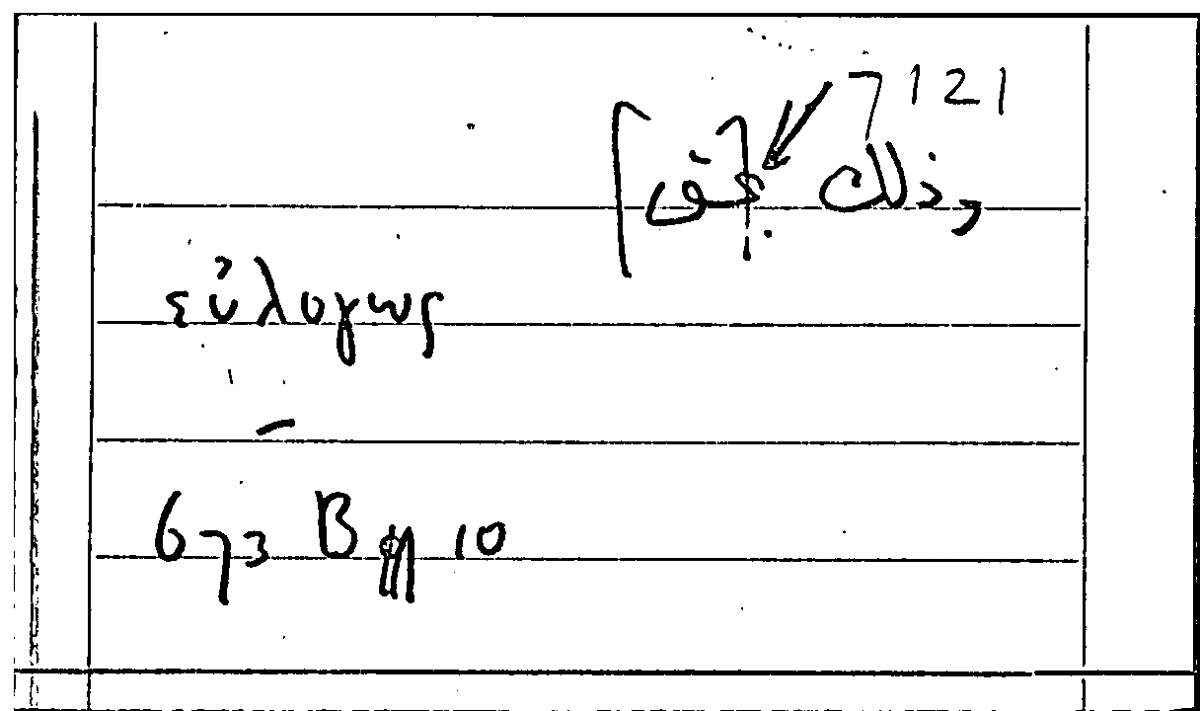 7121
وذلك [بحق]
εὐλογως
–
673 B 10